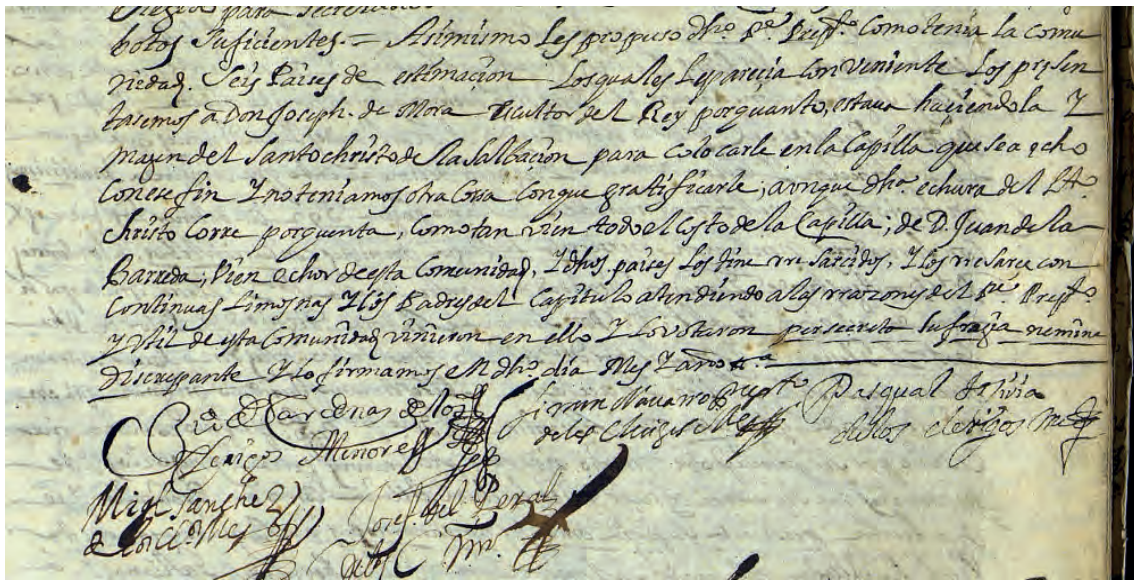 para secretario
botos suficientes. = Asimismo les propuso dho. Pe. Prepto. como tenia la comu
nidad. Seis Paises de estimaçion los quales le pareçia conveniente los presen
tasemos a Don Joseph. de Mora Escultor del Rey por quanto, estava haciendo la Y
majen del Santo christo de la Salbaçion para colocarle en la Capilla que se a echo
con ese fin Y no teniamos otra Cossa con que gratificarle; aunque dha. echura del Sto.
christo Corre por quenta, como tan vien todo el Costo de la Capilla; de D. Juan de la
Barreda; vien echor de esta Comunidad, Y dhos. paises los tine rre sarcidos, Y los rre sarce con
continuas limosnas Y los Padres del Capitulo atendiendo a las rrazones del Pe. Prepto.
y util de esta Comunidad vinieron en ello Y lo votaron per secreto sufragia nemine
discrepante Y lo firmamos en dho. dia Mes Y año
Cardenas de los
Clerigos Menores
Navarro Prepto.
de los Clerigos Mes.
Pasqual de
de los clerigos mes.
Migl Sanchez
de los Cos. Mes.
Josef. del Peral
de los C. Mrs.